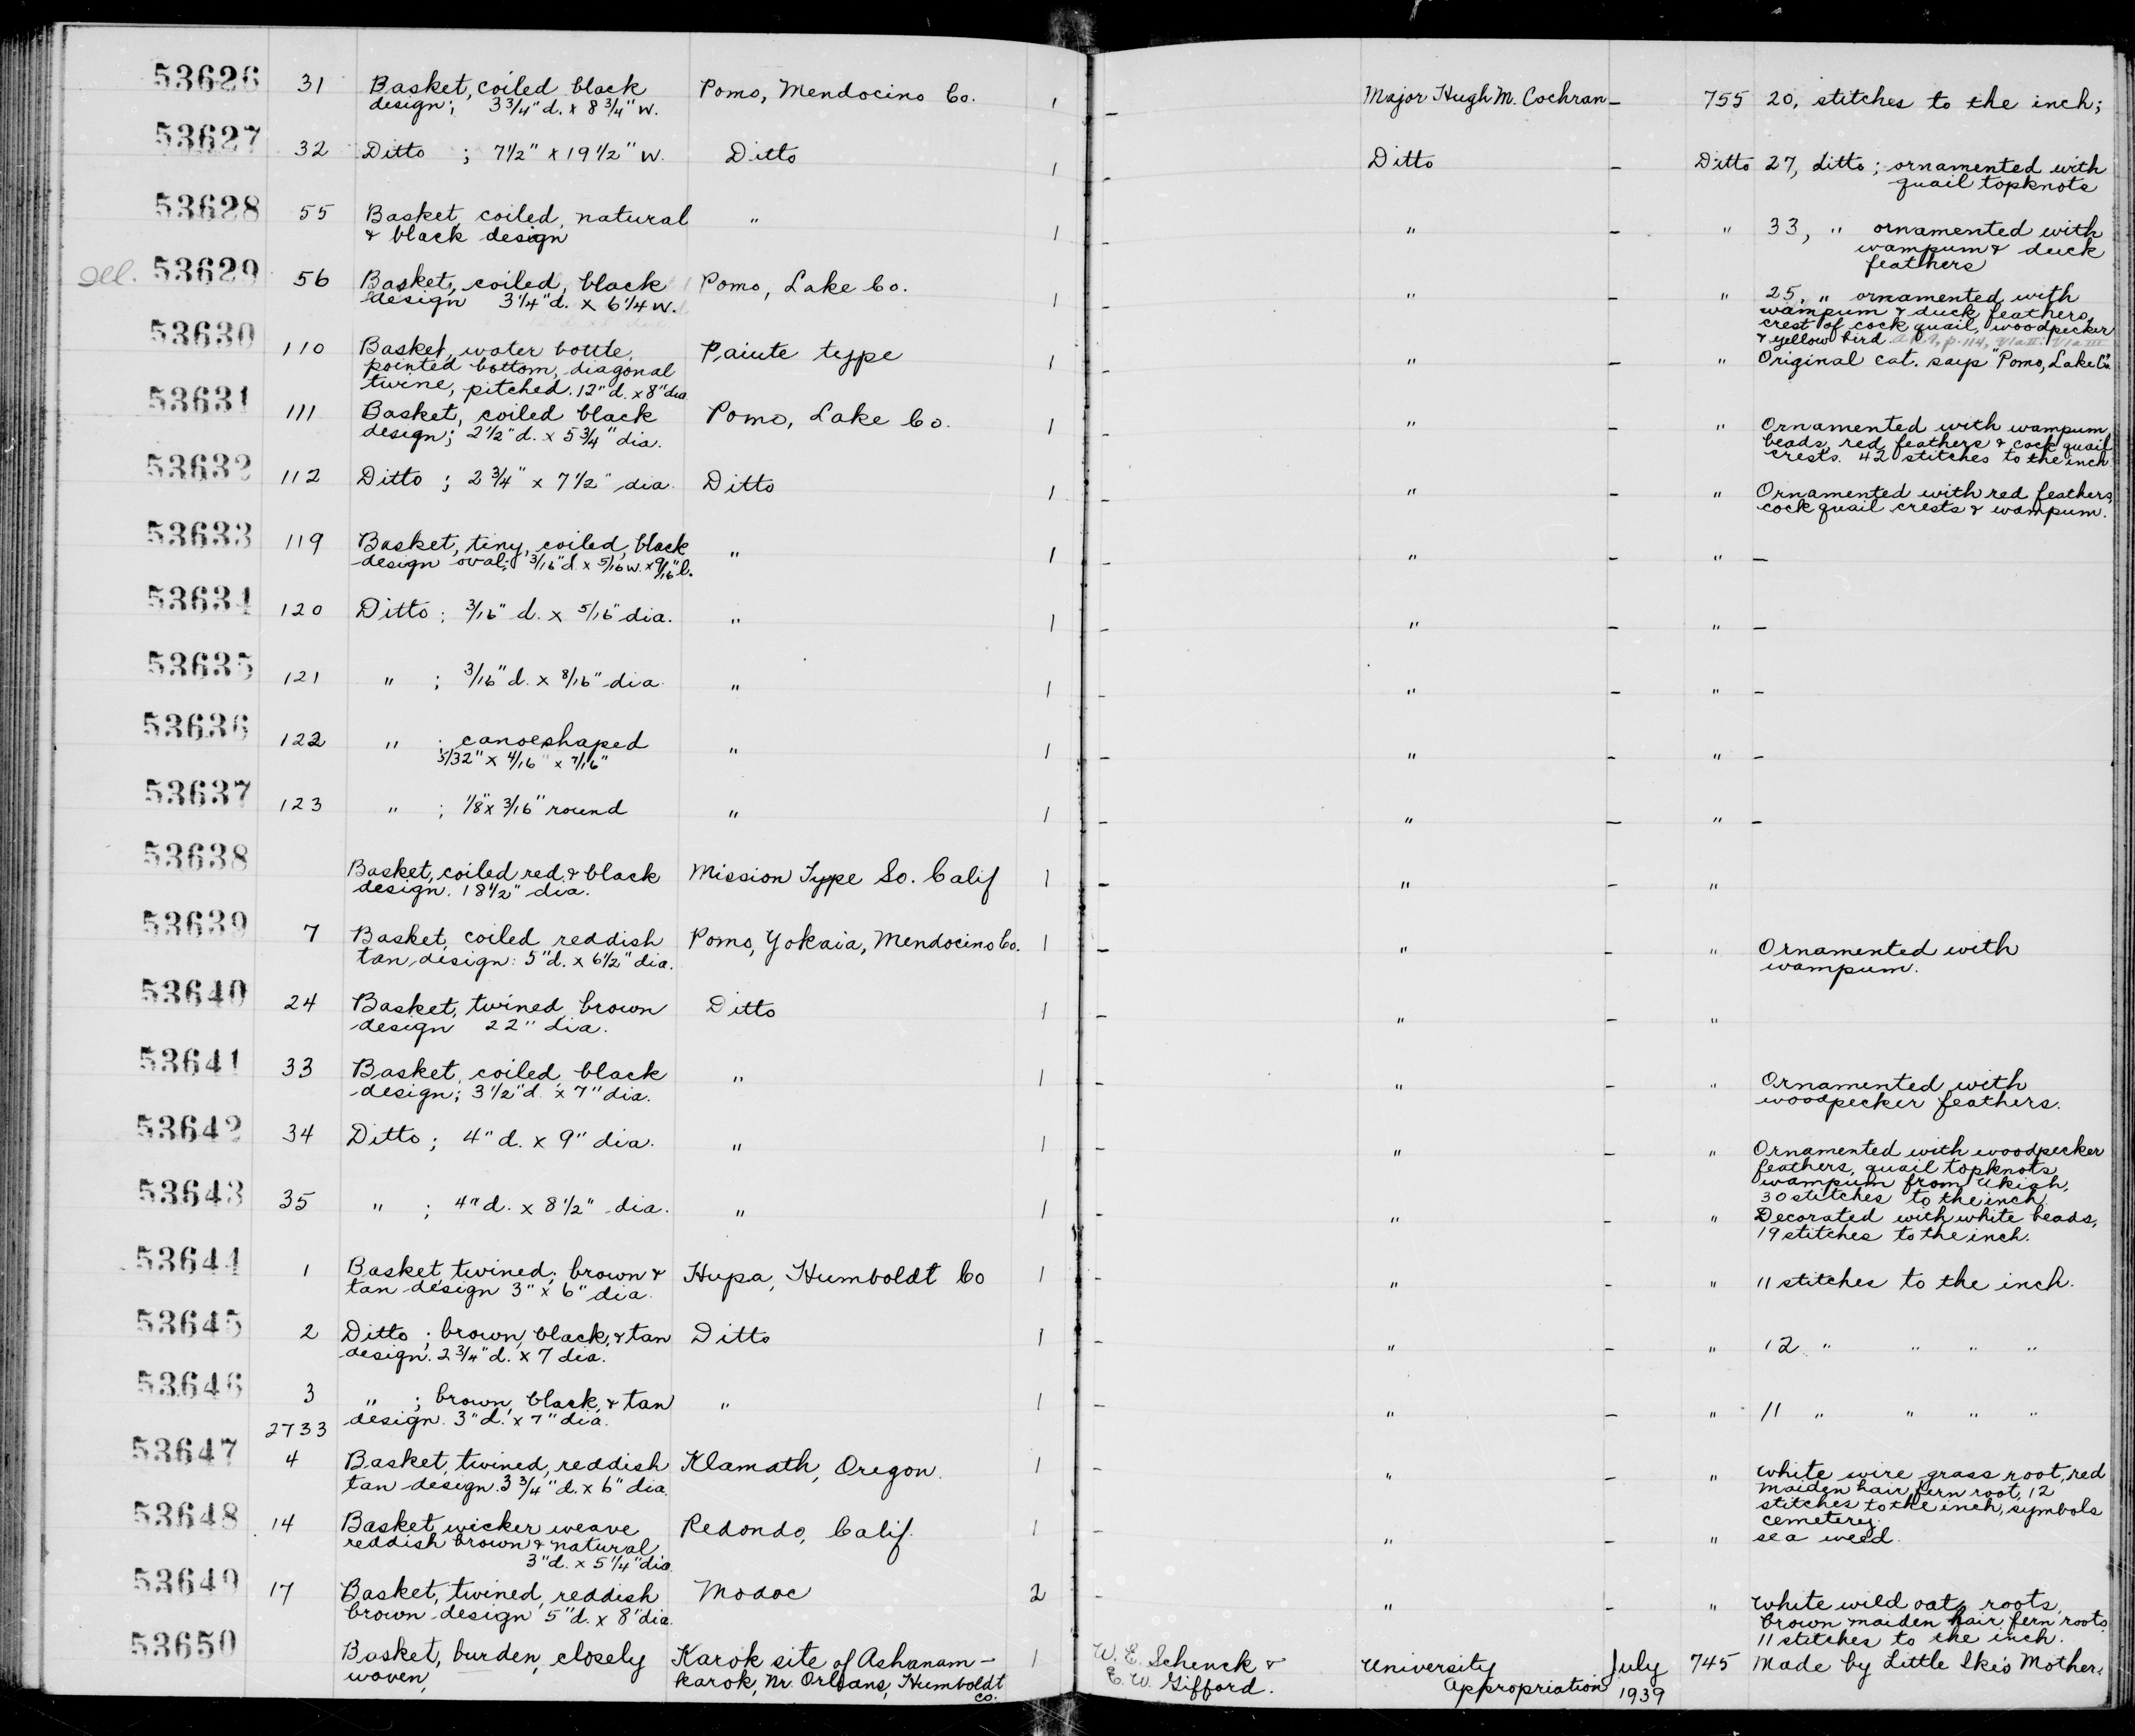 53626 31 Basket, coiled black Pomo, Mendocino Co. 1 - Major Hugh M. Cochran - 755 20, stitches to the inch;
design; 3 3/4" d. x 8 3/4" w.
53627 32 Ditto ; 7 1/2" x 19 1/2" w. Ditto 1 - Ditto - Ditto 27, ditto; ornamented with
quail topknots
53628 55 Basket, coiled, natural " 1 - " - " 33, " ornamented with
& black design wampum & duck
feathers
Ill. 53629 56 Basket, coiled, black Pomo, Lake Co. 1 - " - " 25, " ornamented with
design 3 1/4" d. x 6 1/4 w. wampum & duck feathers,
crest of cock quail, woodpecker
& yellow bird
53630 110 Basket, water bottle, Paiute type 1 - " - " Original cat. says "Pomo, Lake Co."
pointed bottom, diagonal
twine, pitched. 12" d. x 8" dia.
53631 111 Basket, coiled black Pomo, Lake Co. 1 - " - " Ornamented with wampum
design; 2 1/2" d. x 5 3/4" dia. beads, red feathers & cock quail
crests. 42 stitches to the inch
53632 112 Ditto ; 2 3/4" x 7 1/2" dia. Ditto 1 - " - " Ornamented with red feathers,
cock quail crests & wampum.
53633 119 Basket, tiny, coiled, black " 1 - " - " -
design oval; 3/16" d. x 5/16 w. x 9/16" l.
53634 120 Ditto ; 3/16" d. x 5/16" dia. " 1 - " - " -
53635 121 " ; 3/16" d. x 8/16" dia. " 1 - " - " -
53636 122 " ; canoeshaped " 1 - " - " -
5/32" x 4/16" x 7/16"
53637 123 " ; 1/8" x 3/16" round " 1 - " - " -
53638 Basket, coiled red & black Mission Type So. Calif 1 - " - "
design. 18 1/2" dia.
53639 7 Basket, coiled reddish Pomo, Yokaia, Mendocino Co. 1 - " - " Ornamented with
tan design: 5" d. x 6 1/2" dia. wampum.
53640 24 Basket, twined, brown Ditto 1 - " - "
design 22" dia.
53641 33 Basket, coiled, black " 1 - " - " Ornamented with
design; 3 1/2" d. x 7" dia. woodpecker feathers.
53642 34 Ditto ; 4" d. x 9" dia. " 1 - " - " Ornamented with woodpecker
feathers, quail topknots,
wampum from Ukiah,
30 stitches to the inch
53643 35 " ; 4" d. x 8 1/2" dia. " 1 - " - " Decorated with white beads,
19 stitches to the inch.
53644 1 Basket, twined; brown & Hupa, Humboldt Co 1 - " - " 11 stitches to the inch.
tan design 3" x 6" dia.
53645 2 Ditto ; brown, black, & tan Ditto 1 - " - " 12 " " " "
design. 2 3/4" d. x 7 dia.
53646 3 " ; brown, black, & tan " 1 - " - " 11 " " " "
2733 design. 3" d. x 7" dia.
53647 4 Basket, twined, reddish Klamath, Oregon. 1 - " - " White wire grass root, red
tan design. 3 3/4" d. x 6" dia. maiden hair fern root, 12
stitches to the inch, symbols
cemetery.
53648 14 Basket, wicker weave Redondo, Calif. 1 - " - " sea weed.
reddish brown & natural
3" d. x 5 1/4" dia
53649 17 Basket, twined, reddish Modoc 2 - " - " White wild oat, roots,
brown design 5" d. x 8" dia. brown maiden hair fern roots,
11 stitches to the inch.
53650 Basket, burden, closely Karok site of Ashanam- 1 W. E. Schenck & University July 745 Made by Little Ike's Mother.
woven, karok, Nr. Orleans, Humboldt E. W. Gifford. Appropriation 1939
Co.